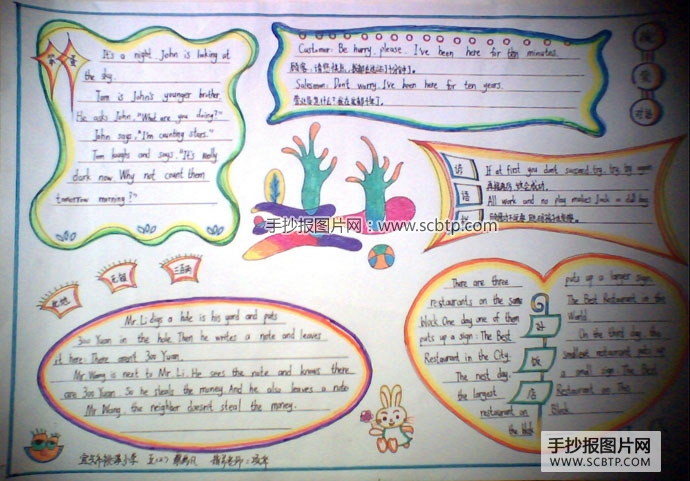 It's a night. John is looking at
the sky.
Tom is John's younger brother.
He asks John, "What are you doing?"
John says, "I'm counting stars."
Tom laughs and says, "It's really
dark now. Why not count them
tomorrow morning?"
Customer: Be hurry, please. I've been here for ten minutes.
Salesman: Don't worry. I've been here for ten years.
If at first you don't succeed, try, try, try again.
All work and no play makes Jack a dull boy.
谚
语
手抄报图片网:www.scbtp.com
此地
无银
三百两
Mr. Li digs a hole is his yard and puts
300 Yuan in the hole. Then he writes a note and leaves
it here: There aren't 300 Yuan.
Mr Wang is next to Mr. Li. He sees the note and knows there
are 300 Yuan. So he steals the money. And he also leaves a note:
Mr. Wang, the neighbor doesn't steal the money.
There are three
restaurants on the same
block. One day one of them
puts up a sign: The Best
Restaurant in the City.
The next day,
the largest
restaurant on
the block
puts up a larger sign:
The Best Restaurant in the
World.
On the third day, the
smallest restaurant puts up
a small sign: The Best
Restaurant on This
Block.
好
饭
店
手抄报图片网
WWW.SCBTP.COM